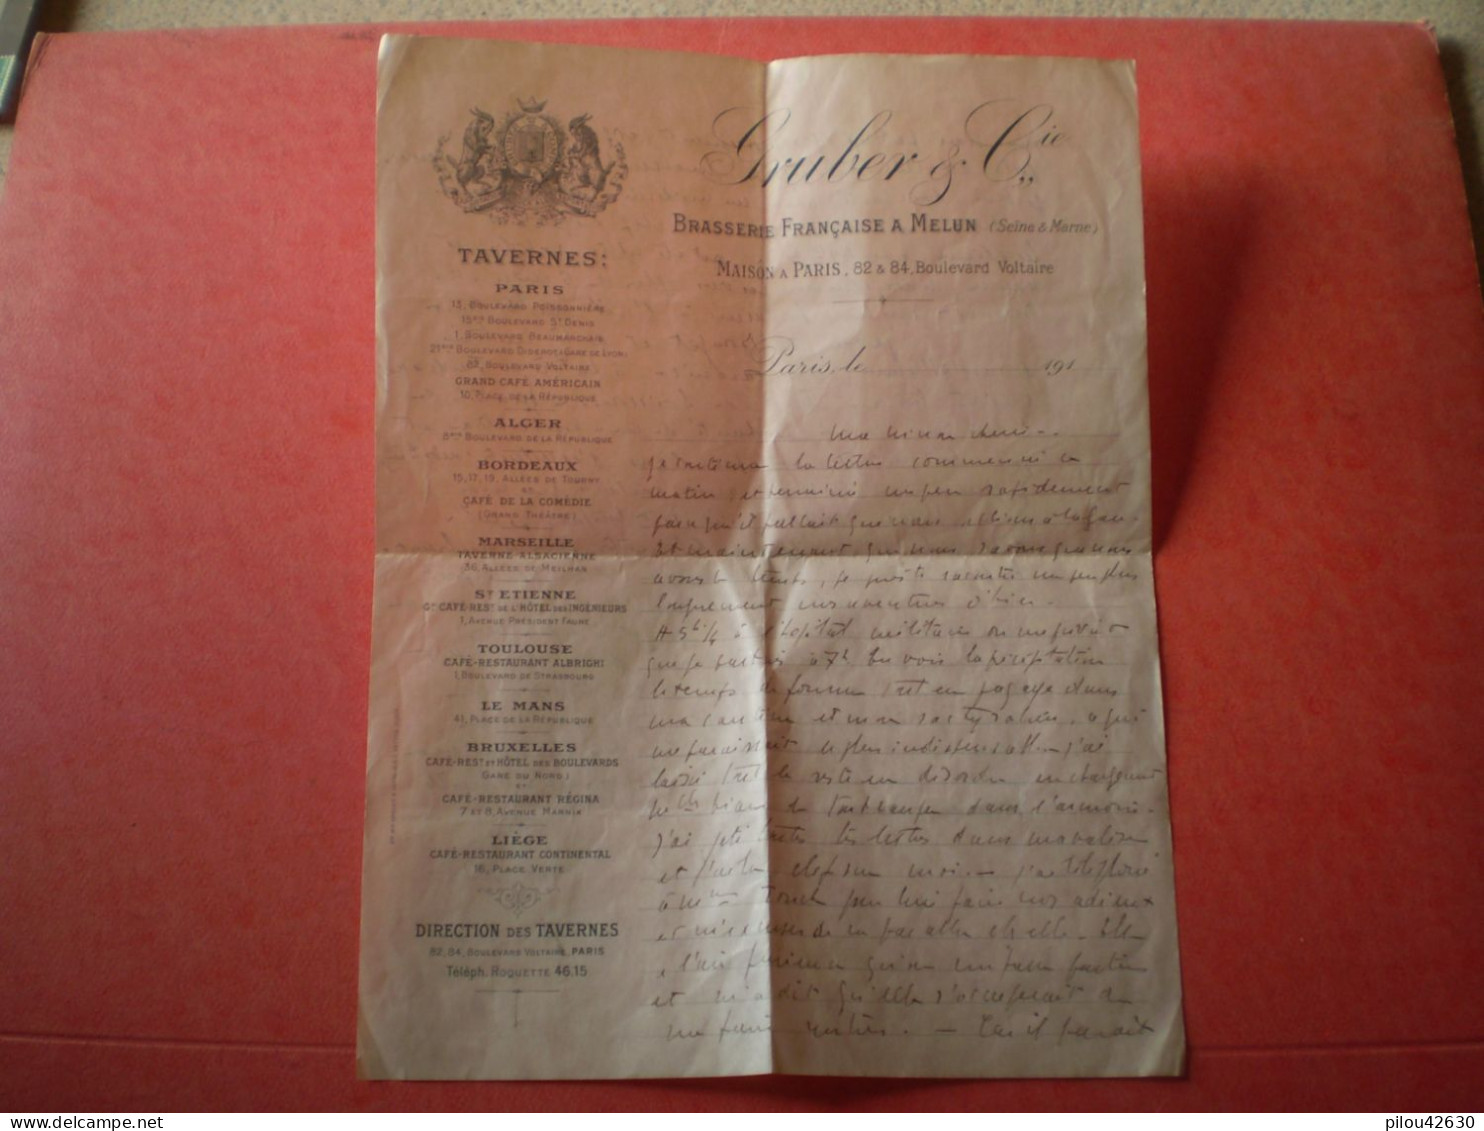 Gruber & Cie
BRASSERIE FRANÇAISE A MELUN (Seine & Marne)
MAISON A PARIS, 82 & 84, Boulevard Voltaire
Paris, le 191
TAVERNES:
PARIS
13, BOULEVARD POISSONNIÈRE
15BIS BOULEVARD ST DENIS
1, BOULEVARD BEAUMARCHAIS
21BIS BOULEVARD DIDEROT (GARE DE LYON)
82, BOULEVARD VOLTAIRE
GRAND CAFÉ AMÉRICAIN
10, PLACE DE LA RÉPUBLIQUE
ALGER
8BIS BOULEVARD DE LA RÉPUBLIQUE
BORDEAUX
15, 17, 19, ALLÉES DE TOURNY
ET
CAFÉ DE LA COMÉDIE
(GRAND THÉATRE)
MARSEILLE
TAVERNE ALSACIENNE
36, ALLÉES DE MEILHAN
ST ETIENNE
GD CAFÉ-REST DE L'HÔTEL DES INGÉNIEURS
1, AVENUE PRÉSIDENT FAURE
TOULOUSE
CAFÉ-RESTAURANT ALBRIGHI
1, BOULEVARD DE STRASBOURG
LE MANS
41, PLACE DE LA RÉPUBLIQUE
BRUXELLES
CAFÉ-REST ET HÔTEL DES BOULEVARDS
GARE DU NORD)
ET
CAFÉ-RESTAURANT RÉGINA
7 ET 8, AVENUE MARNIX
LIÉGE
CAFÉ-RESTAURANT CONTINENTAL
16, PLACE VERTE
DIRECTION DES TAVERNES
82, 84, BOULEVARD VOLTAIRE, PARIS
Téléph. ROQUETTE 46.15
la lettre commencée ce
matin et terminée un peu rapidement
parce qu'il fallait que nous allions à la gare.
Et maintenant que nous savons que nous
avons le temps, je puis te raconter un peu plus
longuement nos aventures d'hier.
A 5h 1/4 à l'hopital militaire on me prévint
que je partais à 7h. Tu vois la précipitation
le temps de fourrer tout en pagaye dans
ma cantine et mon sac tyrolien, ce qui
me paraissait le plus indispensable j'ai
laissé tout le reste en désordre en chargeant
de tout ranger dans l'armoire.
J'ai jeté toutes tes lettres dans ma valise
et j'ai la clef sur moi. J'ai téléphoné
à Mme pour lui faire mes adieux
et m'excuser de ne pas aller chez elle. Elle
et m'a dit qu'elle s'occuperait de
me faire suivre. — Car il parait
pilou42630